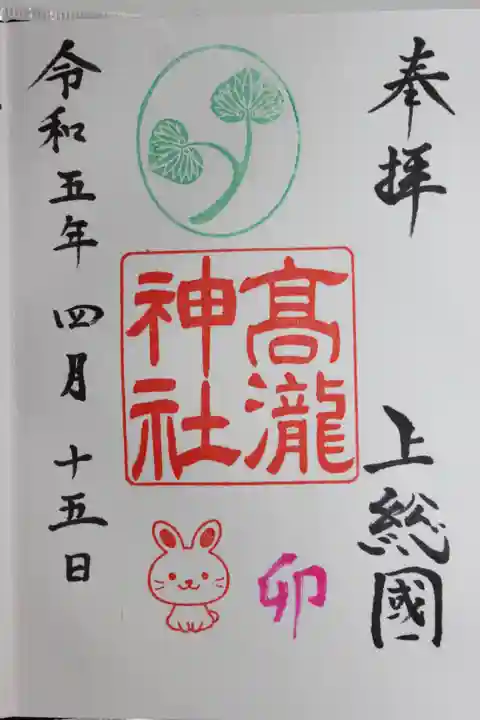 奉拝
上総國
髙瀧
神社
卯
令和五年四月十五日